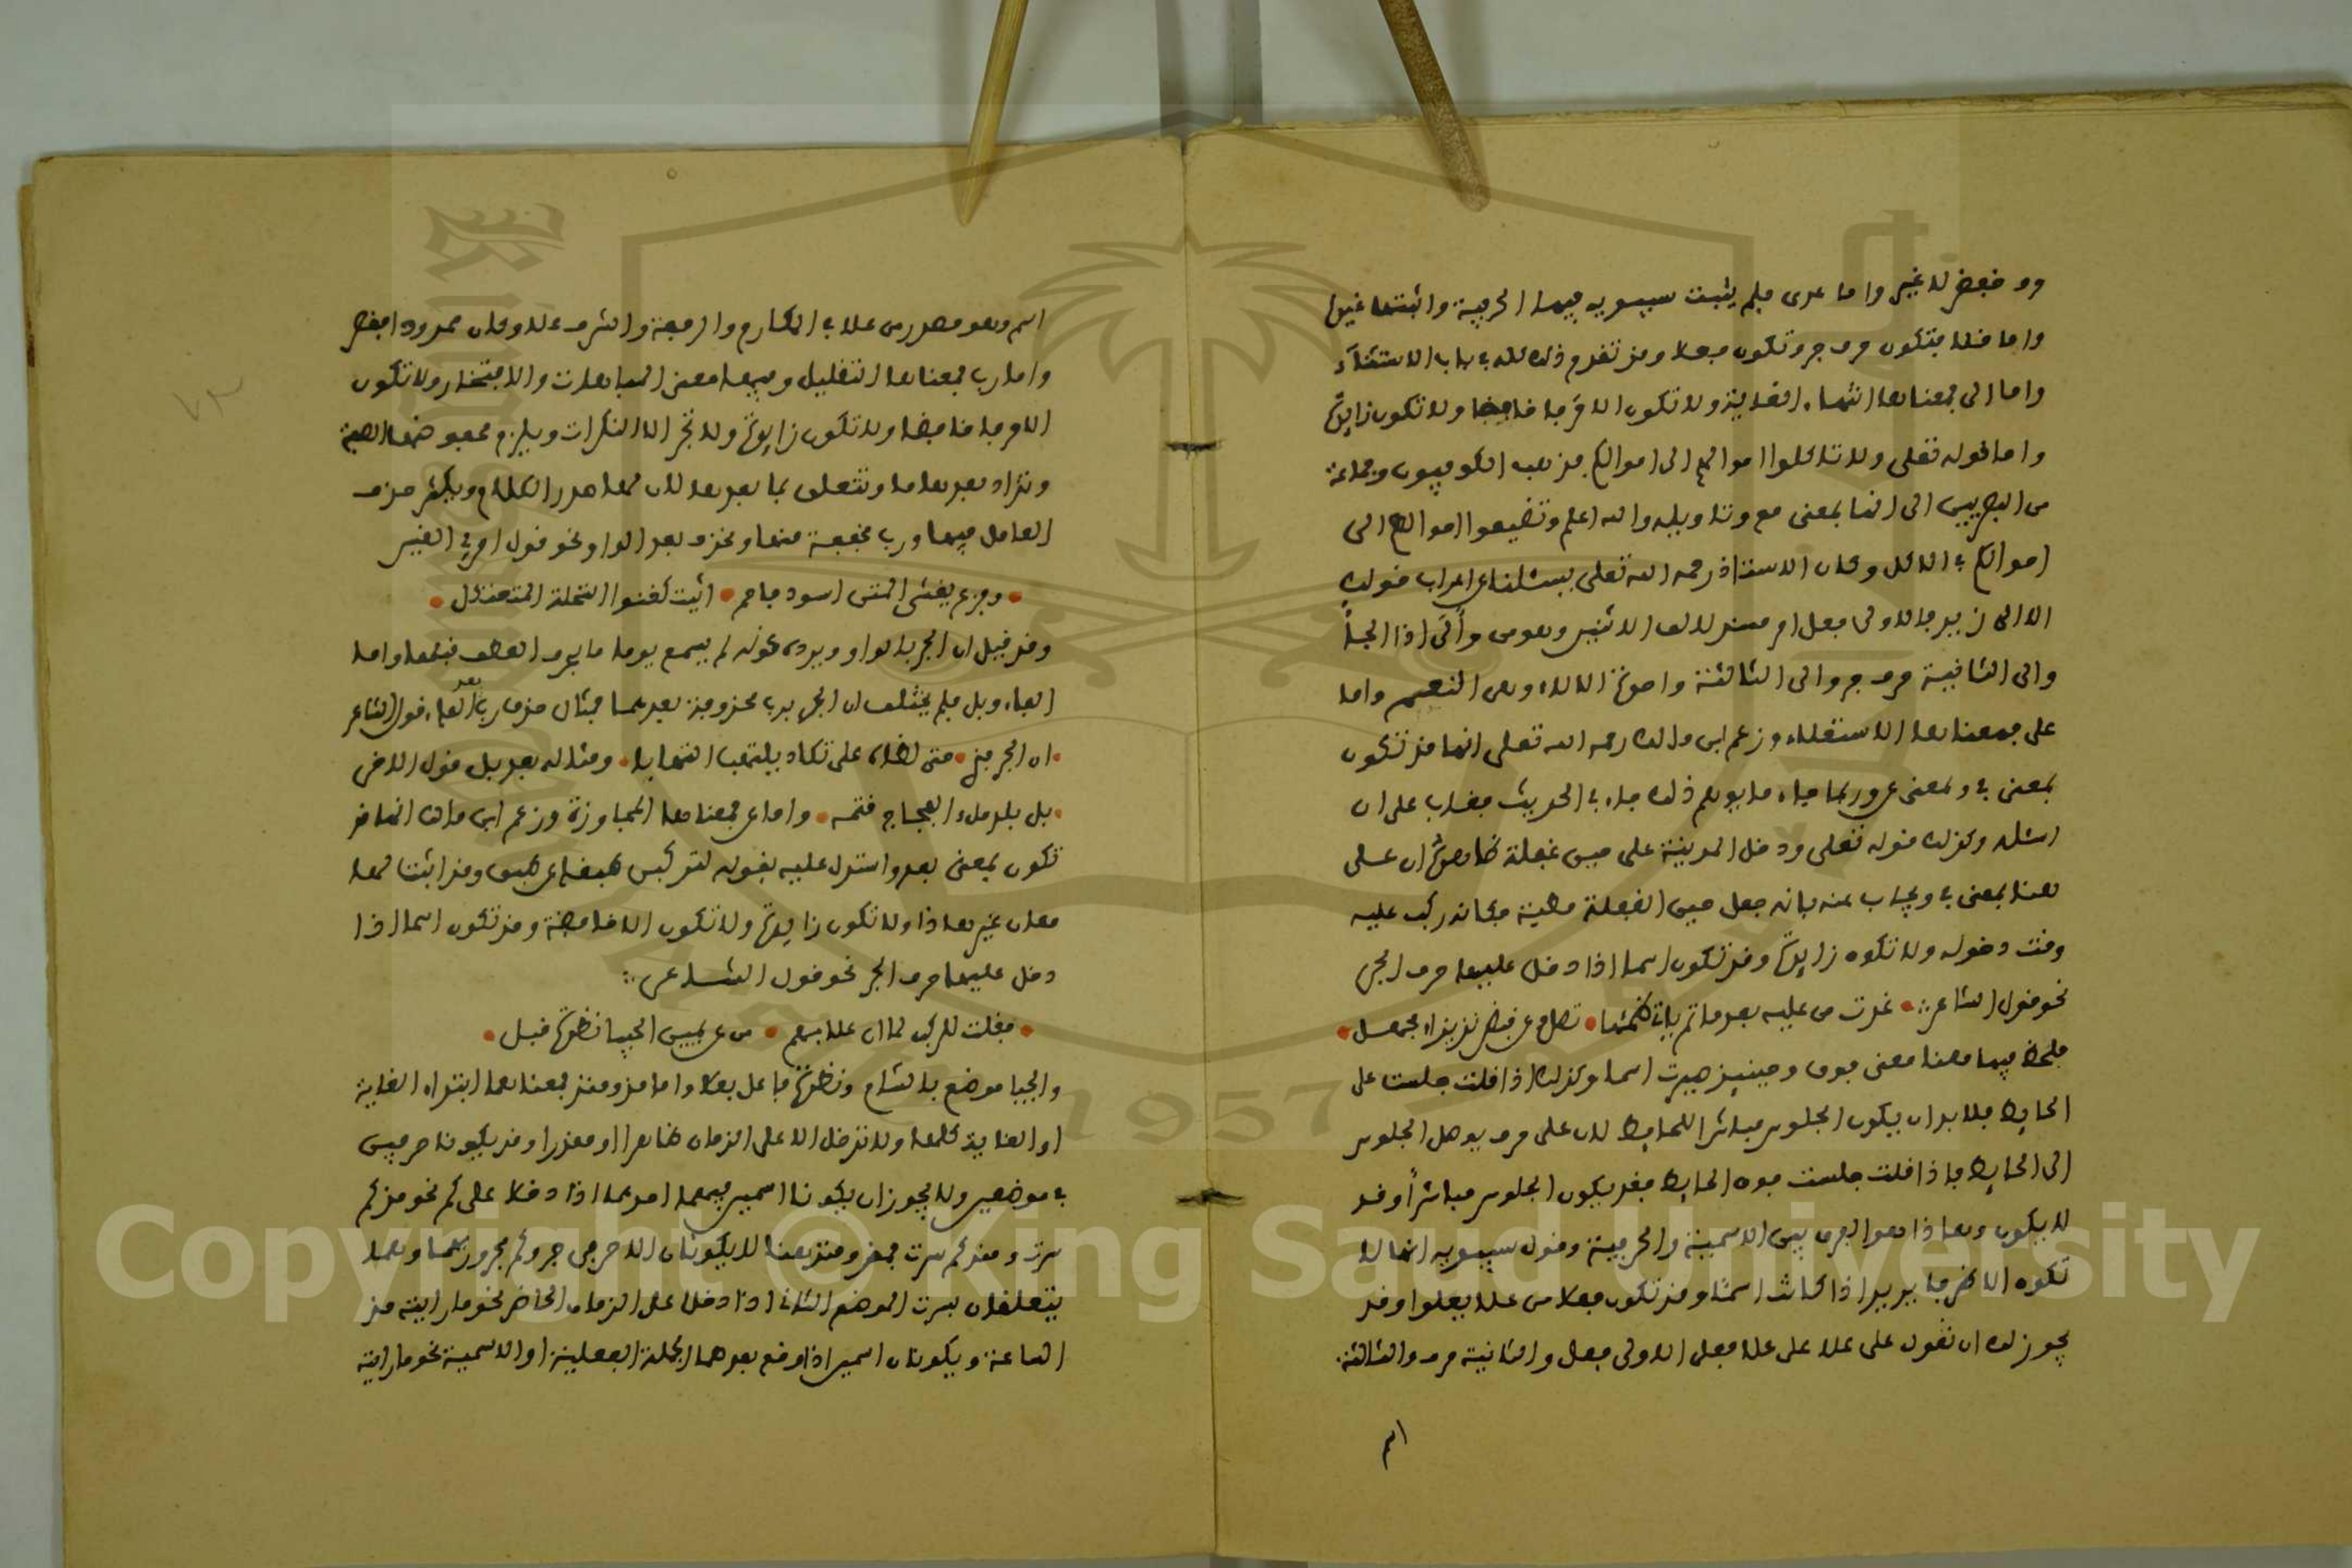 وو خبعض لا غير واما عدى فلم يثبت سيبويه فيها الحرفية واثبتها غيره
واما خلا فتكون حرف جر وتكون فعلا وقد تقدم ذلك كله في باب الاستثناء
واما الى فمعناها انتهاء الغاية ولا تكون الا حرفا خافضا ولا تكون زايدة
واما قوله تعلى ولا تاكلوا اموالهم الى اموالكم فذهب الكوفيون وجماعة
من البصريين الى انها بمعنى مع وتاويله والله اعلم وتضيفوا اموالهم الى
اموالكم في الاكل وكان الاستاذ رحمه الله تعلى يسئلنا عن اعراب قولك
الا الى زيد فالاولى فعل امر مسند لالف الاثنين وهو من وأَلَى اذا لجأ
والى الثانية حرف جر والى الثالثة واحدة الالاء وهي النعم واما
على فمعناها الاستعلاء وزعم ابن مالك رحمه الله تعلى انها قد تكون
بمعنى في وبمعنى عن وربما جاء ما يوهم ذلك جاء في الحديث بغداب على ان
اسئله وكذلك قوله تعلى ودخل المدينة على حين غفلة ظاهره ان على
هنا بمعنى في ويجاب عنه بانه جعل حين الغفلة مطية فكانه ركب عليه
وقت دخوله ولا تكون زايدة وقد تكون اسما اذا دخل عليها حرف الجر
نحو قول الشاعر غدت من عليه بعد ما تم ظمئها تصل وعن قيض بزيزاء مجهل
فلحظ فيها معنا معنى فوق وحينيذ صيرت اسما وكذلك اذا قلت جلست على
الحايط فلا بد ان يكون الجلوس مباشرا للحايط لان على حرف يوصل الجلوس
الى الحايط فاذا قلت جلست فوق الحايط فقد يكون الجلوس مباشراً وقد
لا يكون وهاذا هو الفرق بين الاسمية والحرفية وقول سيبويه انها لا
تكون الا ظرفا يريد اذا كانت اسما وقد تكون فعلا من علا يعلوا وقد
يجوز لك ان تقول على علا على علا فعلى الاولى فعل والثانية حرف والثالثة
اسم وهو مصدر من علا في المكارم والرفعة والشرف علاء وكان ممدودا فقصر
واما رب فمعناها التقليل وفيها معنى المباهات والافتخار ولا تكون
الا حرفا خافضا ولا تكون زايدة ولا تجر الا النكرات ويلزم مخفوضها الصفة
وتزاد بعدها ما وتتعلق بما بعدها لان لها صدر الكلام ويكثر حذف
العامل فيها ورب مخففة منها وتحذف بعد الواو نحو قول امرئ القيس
وفرع يغشى المتن اسود فاحم اثيث كقنوا النخلة المتعثكل
وقد قيل ان الجر بالواو ويرده كونه لم يسمع يوما ما حرف العطف قبلها واما
الفاء وبل فلم يختلف ان الجر برب محذوفة بعدهما فمثال حذف رب بعد الفاء قول الشاعر
متى لظاء على تكاد يلتهب التهابا ومثاله بعد بل قول الاخر
بل بلد ملء الفجاج قتمه واما عن فمعناها المجاوزة وزعم ابن مالك انها قد
تكون بمعنى بعد واستدل عليه بقوله لتركبن طبقا عن طبق وقد اثبت لها
معان غير هاذا ولا تكون زايدة ولا تكون الا خافضة وقد تكون اسما اذا
دخل عليها حرف الجر نحو قول الشاعر
فقلت للركب لما ان علا بهم من عن يمين الحبيا نظرة قبل
والحبيا موضع بالشام ونظرة فاعل بعلا واما مذ ومنذ فمعناهما ابتداء الغاية
او الغاية كلها ولا تدخل الا على الزمان ظاهرا او مقدرا وقد يكونا حرفين
في موضعين ولا يجوز ان يكونا اسمين فيهما احدهما اذا دخلا على كم نحو مذ كم
سرت ومنذ كم سرت فمذ ومنذ هنا لا يكونان الا حرفي جر وكم مجرور بهما وهما
يتعلقان بسرت الموضع الثاني اذا دخلا على الزمان الحاضر نحو ما رايته مذ
الساعة ويكونان اسمين اذا وقع بعدهما الجملة الفعلية او الاسمية نحو ما رايته